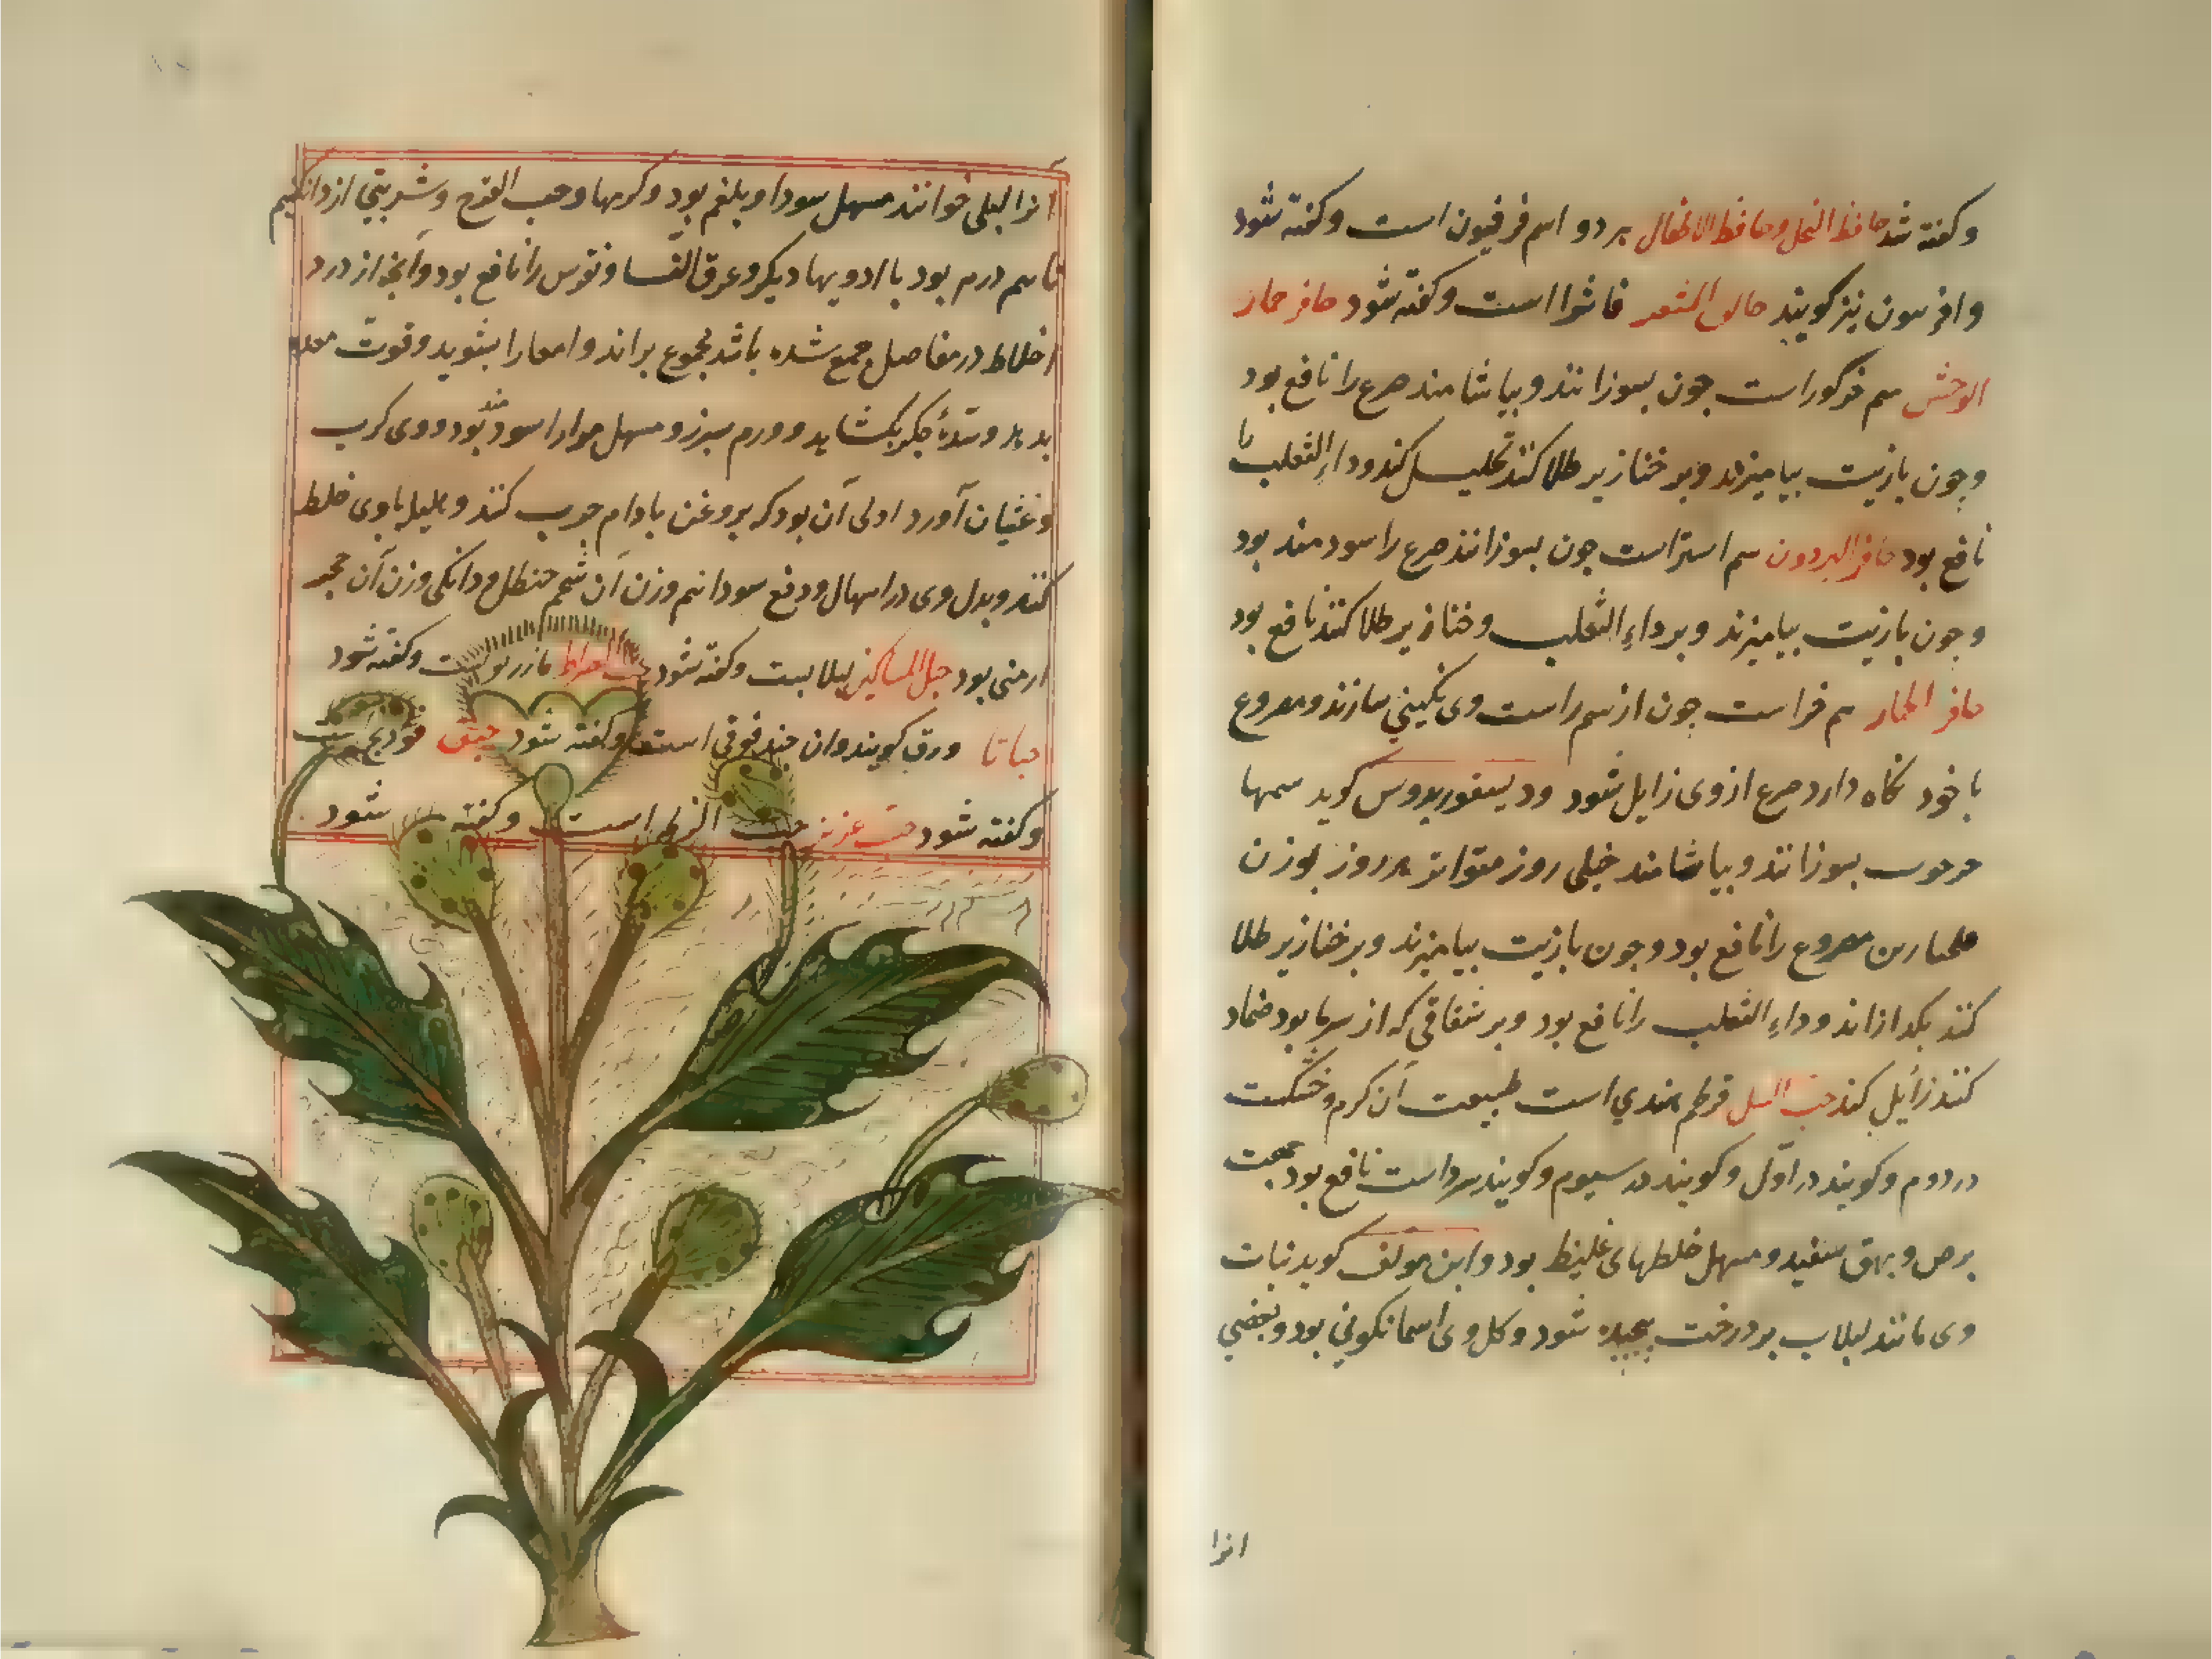 وکفته شد حافظ النحل وحافظ الاطفال هر دو اسم فرفیون است وکفته شود
وافرسون نیز کویند حالق الشعر فاشرا است وکفته شود حافر حمار
الوحش سم خرکور است جون بسوزانند و بیاشامند صرع را نافع بود
وجون بازیت بیامیزند و بر خنازیر طلا کنند تحلیل کند و داء الثعلب را
نافع بود حافر البردون سم استر است جون بسوزانند صرع را سودمند بود
وجون بازیت بیامیزند و بر داء الثعلب و خنازیر طلا کنند نافع بود
حافر الحمار سم خر است جون از سم راست وی نکینی سازند و مصروع
با خود نکاه دارد صرع از وی زایل شود ودیسقوریدوس کوید سمها
بسوزانند و بیاشامند خیلی روز متواتر هر روز بوزن
مصروع را نافع بود وجون بازیت بیامیزند و بر خنازیر طلا
کنند بکدازاند و داء الثعلب را نافع بود و بر شقاقی که از سرما بود ضماد
کنند زایل کند حب النیل قرطم هندی است طبیعت آن کرم وخشکست
در دوم وکویند در اول وکویند در سیوم وکویند سرد است نافع بود جهت
برص و بهق سفید و مسهل خلطهای غلیظ بود و ابن مولف کوید نبات
وی مانند لبلاب بر درخت پیچیده شود وکل وی اسمانکونی بود وبعضی
انرا
انرا لیلی خوانند مسهل سودا و بلغم بود وکرمها وحب القرع وشربتی از دانکنیم
تا سم درم بود با ادویهاء دیکر و عرق النسا و نقرس را نافع بود وآنجه از درد
اخلاط در مفاصل جمع شده باشد مجموع براند و امعا را بشوید وقوت معده
بدهد وسدۀ جکر بکشاید و ورم سبرز و مسهل مواد را سودمند بود و وی کرب
و غثیان آورد اولی آن بود که بروغن بادام جرب کنند و هلیله باوی خلط
کنند و بدل وی در اسهال و دفع سودا نیم وزن آن شحم حنظل و دانکی وزن آن حجر
ارمنی بود حبل المساکین لبلابست وکفته شود مازریونست وکفته شود
حباتا ورق کویند وان حندقوقی است وکفته شود حبق فودنج است
وکفته شود حب عزیز حب الزلم است وکفته شود